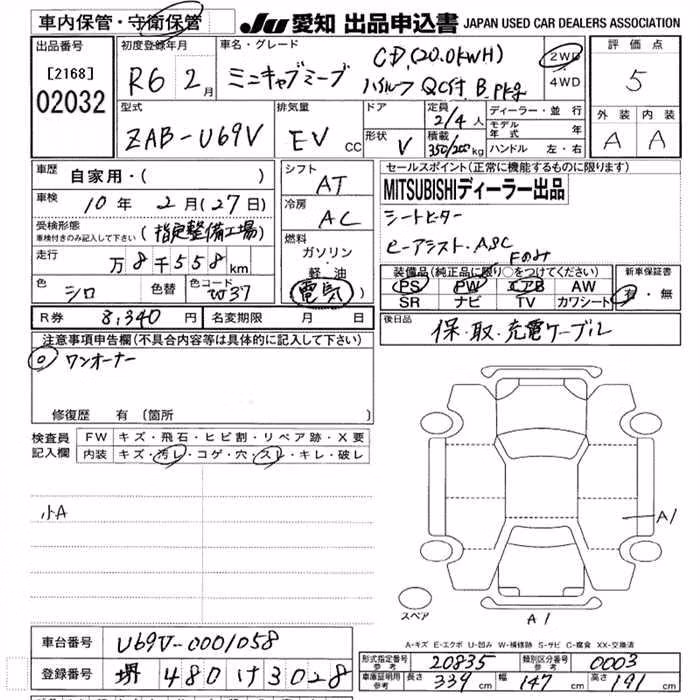 車内保管・守衛保管
JU 愛知 出品申込書 JAPAN USED CAR DEALERS ASSOCIATION
出品番号
[2168]
02032
初度登録年月
R6 2月
車名・グレード
CD(20.0kWH)
ミニキャブミーブ ハイルーフ QC付 B.pkg
2WD
4WD
評価点
5
外装 内装
A A
型式
ZAB-U69V
排気量
EV CC
ドア
形状 V
定員
2/4人
積載
350/200kg
ディーラー・並行
モデル年式 年
ハンドル 左・右
車歴
自家用・( )
車検
10年 2月(27日)
受検形態
車検付きのみ記入して下さい
(指定整備工場)
走行
万8千558km
色
シロ
色替
色コード
W37
シフト
AT
冷房
AC
燃料
ガソリン・軽油
電気
セールスポイント(正常に機能するものに限ります)
MITSUBISHIディーラー出品
シートヒーター
e-アシスト・ASC
Fのみ
装備品(純正品に限り○をつけてください)
PS PW エアB AW
SR ナビ TV カワシート
新車保証書
有・無
R券 8,340円
名変期限 月 日
後日品
保・取・充電ケーブル
注意事項申告欄(不具合内容等は具体的に記入して下さい)
◎ ワンオーナー
修復歴 有(箇所 )
検査員記入欄
FW キズ・飛石・ヒビ割・リペア跡・X要
内装 キズ・汚レ・コゲ・穴・スレ・キレ・破レ
小A
A1
A1
スペア
A-キズ E-エクボ U-凹み W-補修跡 S-サビ C-腐食 XX-交換済
車台番号
U69V-0001058
登録番号
堺 480 け 3028
形式指定番号
参考
20835
類別区分番号
参考
0003
車庫証明用
参考
長さ 339cm 幅 147cm 高さ 191cm